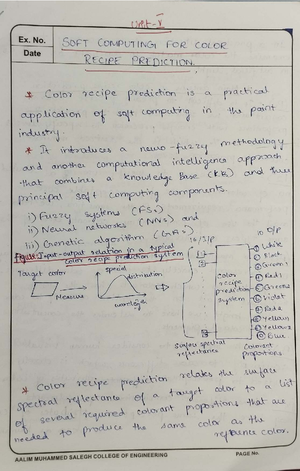 Unit-V
Ex. No.
Date
SOFT COMPUTING FOR COLOR
RECIPE PREDICTION.
* Color recipe prediction is a practical
application of soft computing in the paint
industry.
* It introduces a neuro-fuzzy methodology
and another computational intelligence approach
that combines a knowledge Base (KB) and three
principal soft computing components.
i) Fuzzy Systems (FSs)
ii) Neural networks (NNs) and
iii) Genetic algorithm (GAs)
Figure: Input-output relation in a typical
color recipe prediction system
Target color
Measure
spectral
distribution
wavelength
16 I/P
10 O/P
Color
recipe
prediction
system
White
Black
Green1
Red1
Green2
Violet
Red2
Yellow1
Yellow2
Blue
Surface spectral
reflectances
Colorant
proportions
* Color recipe prediction relates the surface
spectral reflectance of a target color to a list
of several required colorant proportions that are
needed to produce the same color as the
reflectance color.
AALIM MUHAMMED SALEGH COLLEGE OF ENGINEERING
PAGE No.